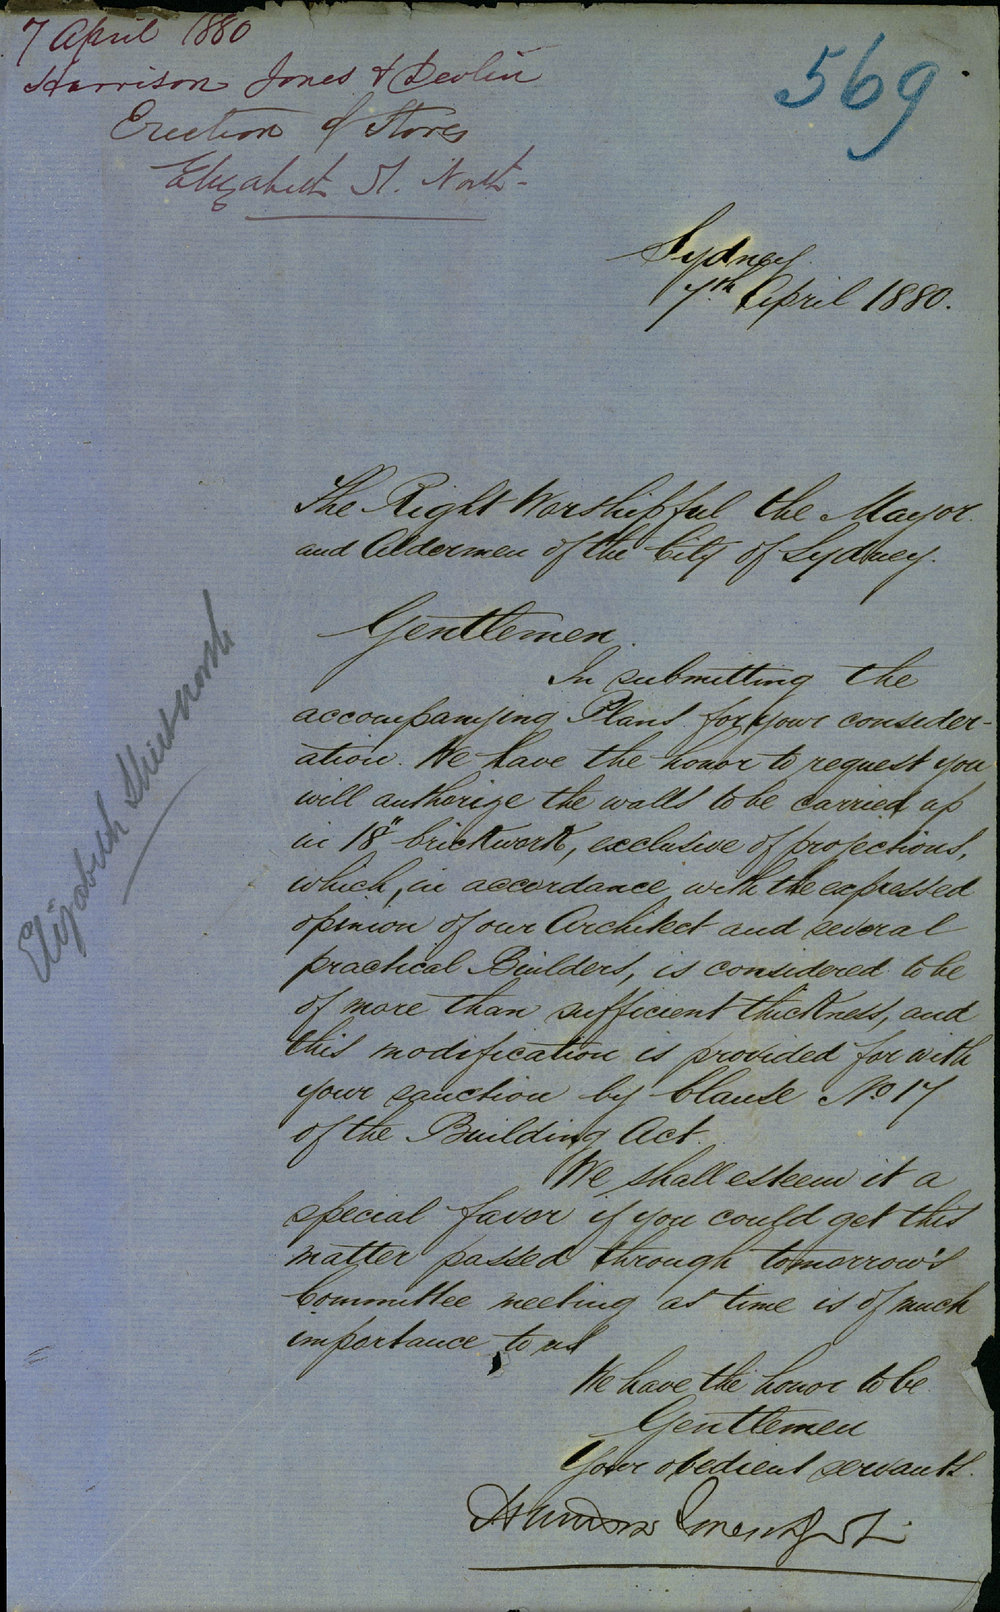 7 April 1880
Harrison Jones & Devlin
Erection of Stores
Elizabeth St. North-
569
Sydney
7th April 1880.
The Right Worshipful the Mayor
and Aldermen of the City of Sydney.
Gentlemen.
In submitting the
accompanying Plans for your consider-
ation. We have the honor to request you
will authorize the walls to be carried up
in 18" brickwork, exclusive of projections,
which, in accordance with the expressed
opinion of our Architect and several
practical Builders, is considered to be
of more than sufficient thickness, and
this modification is provided for with
your sanction by Clause No 17
of the Building Act.
We shall esteem it a
special favor if you could get this
matter passed through tomorrow's
Committee meeting as time is of much
importance to us
We have the honor to be
Gentlemen
Your obedient servants.
Harrison Jones & Devlin
Elizabeth Street North